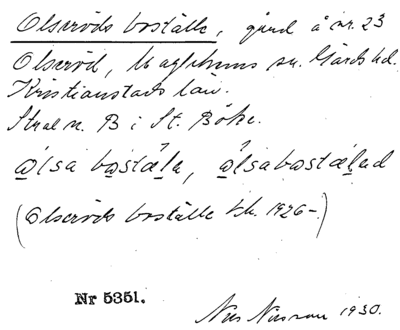 Olseröds boställe, gård å nr. 23
Olseröd, Maglehems sn. Gärds hd.
Kristianstads län.
Stael n. B i St. Böke.
ålsa bostäle, ålsabostäled
(Olseröds boställe 1926-)
Nr 5351.
Nils 1930.